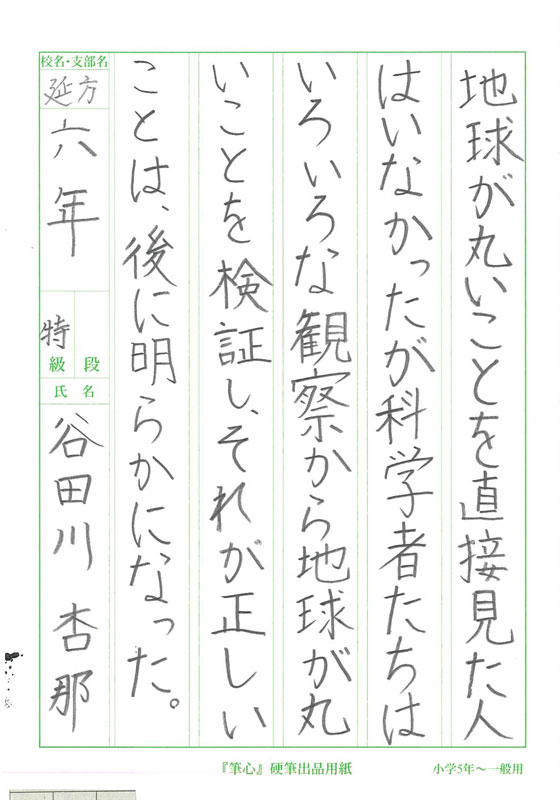 地球が丸いことを直接見た人
はいなかったが科学者たちは
いろいろな観察から地球が丸
いことを検証し、それが正しい
ことは、後に明らかになった。
校名・支部名
延方
六年
特級
段
氏名
谷田川 杏那
『筆心』硬筆出品用紙
小学5年～一般用